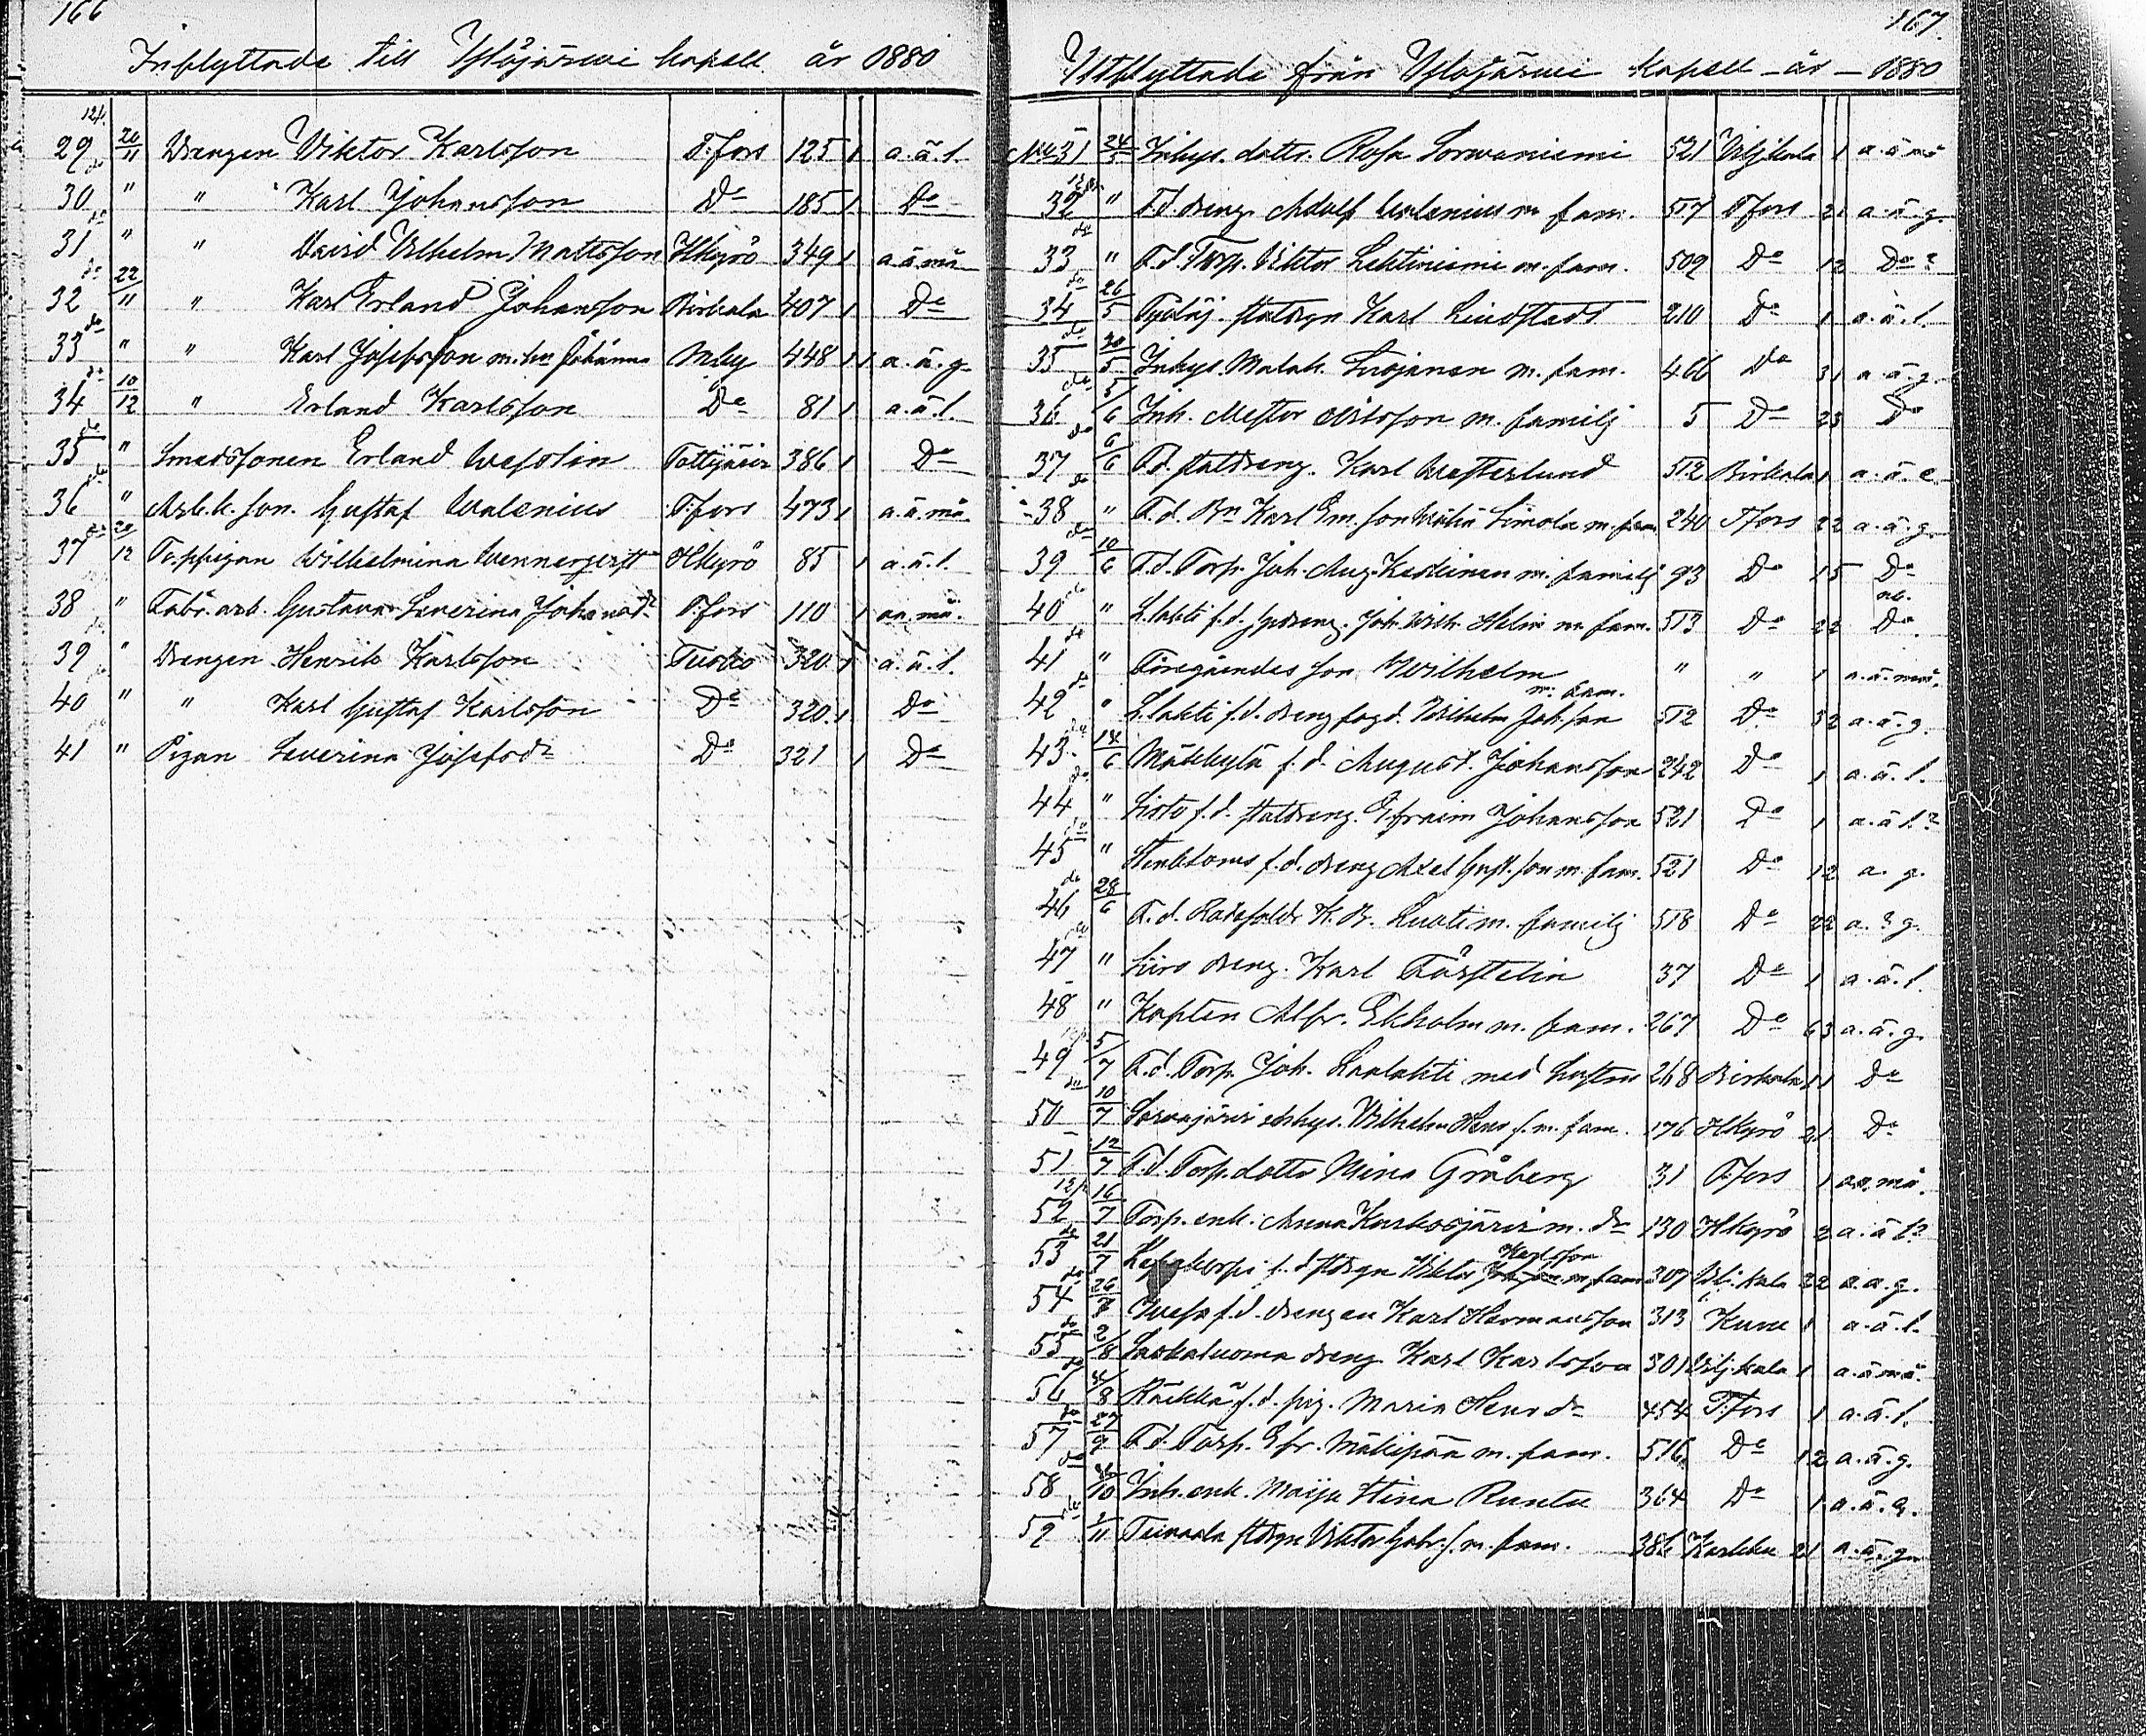 166
Inflyttade till Ylöjärwi kapell år 1880
29 20/11 Drengen Viktor Karlsson T.fors 125 1 a.ä.l.
30 " " Karl Johansson Do 185 1 Do
31 " " David Vilhelm Mattsson Hkyrö 349 1 a.ä.må
32 22/11 " Karl Erland Johansson Birkala 407 1 Do
33 " " Karl Josefsson m. hu Johanna Mby 448 1 1 a.ä.g.
34 10/12 " Erland Karlsson Do 81 1 a.ä.l.
35 " Smedssonen Erland Wesslin Tottijärvi 386 1 Do
36 " Arb.k. son. Gustaf Walenius T.fors 473 1 a.ä.må
37 20/12 To.ppigan Wilhelmina Wennerqvist Hkyrö 85 1 a.ä.l.
38 " Fabr. arb. Gustava Severina Johansdr T.fors 110 1 a.ä.må.
39 " Drengen Henrik Karlsson 320 1 a.ä.l.
40 " " Karl Gustaf Karlsson Do 320 1 Do
41 " Pigan Severina Josefsdr Do 321 1 Do
167.
Utflyttade från Ylöjärwi kapell - år - 1880
No 31 24/5 Inhys. dottr. Rosa Sorwaniemi 521 Viljkala 1 a.ä.må
32 " F.d. dreng. Adolf Walenius m. fam. 517 T.fors 21 a.ä.g.
33 " F.d. Torp. Viktor Lehtiniemi m. fam. 509 Do 12 Do ?
34 26/5 statdrgn Karl Lindstedt 210 Do 1 a.ä.l.
35 30/5 Inhys. Malak. m. fam. 466 Do 31 a.ä.g.
36 5/6 Inh. Nilsson m. familj 5 Do 23 Do
37 6/6 F.d. statdreng. Karl Westerlund 512 Birkala 1 a.ä.e
38 " F.d. Bn Karl Em. son Simola m. fam 240 T.fors 22 a.ä.g.
39 10/6 F.d. Torp. Joh. Aug. Keskinen m. familj 93 Do 15 Do
40 " f.d. dreng. Joh. Wilh. Helin m. fam. 513 Do 22 Do
41 " Föregåendes son Wilhelm " " 1 a.ä.må.
42 " f.d. drengfogd. Wilhelm Joh.son m. fam. 512 Do 32 a.ä.g.
43 14/6 Mäkkylä f.d. August Johansson 242 Do 1 a.ä.l.
44 " Sisto f.d. statdreng. Efraim Johansson 521 Do 1 a.ä.l.?
45 " f.d. dreng Axel Gust.son m. fam. 521 Do 12 a. g.
46 28/6 F.d. K. R. m. familj 518 Do 22 a. ? g.
47 " Siiro dreng. Karl Forstelin 37 Do 1 a.ä.l.
48 " Kapten Alfr. Ekholm m. fam. 267 Do 63 a.ä.g.
49 5/7 F.d. Torp. Joh. med hustru 268 Birkala 11 Do
50 10/7 Vilhelm Henr.s. m. fam. 176 Hkyrö 21 Do
51 12/7 F.d. Torp.dottr Mina Gråberg 31 T.fors 1 a.ä.må.
52 16/7 Torp. enk. Anna Karhosjärvi m. dr 130 Hkyrö 2 a.ä.l?
53 21/7 f.d. stdrgn Viktor Karlsson m. fam 307 Vilj.kala 22 a.ä.g.
54 26/7 f.d. drengen Karl Hermansson 313 Kuru 1 a.ä.l.
55 2/8 dreng Karl Karlsson 301 Vilj.kala 1 a.ä.må.
56 4/8 Räikkä f.d. pig. Maria Henr.dr 454 T.fors 1 a.ä.l.
57 27/9 F.d. Torp. Efr. Mäkipää m. fam. 516 Do 12 a.ä.g.
58 4/10 Inh. enk. Maija Stina Runtu 364 Do 1 a.ä.
59 2/11 stdrgn Viktor Gabr.s. m. fam. 386 Karkku 21 a.ä.g.